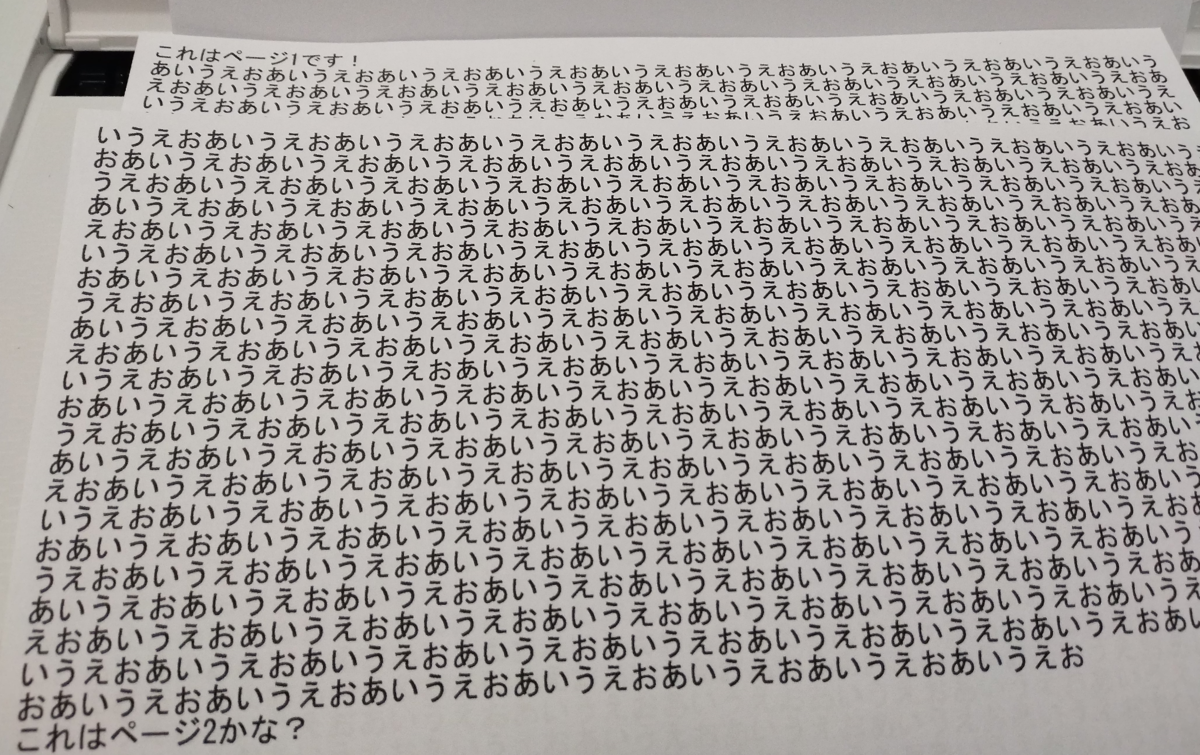 これはページ1です！
あいうえおあいうえおあいうえおあいうえおあいうえおあいうえおあいうえおあいうえおあいう
えおあいうえおあいうえおあいうえおあいうえおあいうえおあいうえおあいうえおあいうえおあ
いうえおあいうえおあいうえおあいうえおあいうえおあいうえおあいうえおあいうえおあいうえ
いうえおあいうえおあいうえおあいうえおあいうえおあいうえおあいうえおあいうえおあいう
おあいうえおあいうえおあいうえおあいうえおあいうえおあいうえおあいうえおあいうえおあ
うえおあいうえおあいうえおあいうえおあいうえおあいうえおあいうえおあいうえおあいう
あいうえおあいうえおあいうえおあいうえおあいうえおあいうえおあいうえおあいうえおあ
えおあいうえおあいうえおあいうえおあいうえおあいうえおあいうえおあいうえおあいうえ
いうえおあいうえおあいうえおあいうえおあいうえおあいうえおあいうえおあいうえおあ
おあいうえおあいうえおあいうえおあいうえおあいうえおあいうえおあいうえおあいうえ
うえおあいうえおあいうえおあいうえおあいうえおあいうえおあいうえおあいうえおあい
あいうえおあいうえおあいうえおあいうえおあいうえおあいうえおあいうえおあいうえ
えおあいうえおあいうえおあいうえおあいうえおあいうえおあいうえおあいうえおあい
いうえおあいうえおあいうえおあいうえおあいうえおあいうえおあいうえおあいうえ
おあいうえおあいうえおあいうえおあいうえおあいうえおあいうえおあいうえおあい
うえおあいうえおあいうえおあいうえおあいうえおあいうえおあいうえおあいうえお
あいうえおあいうえおあいうえおあいうえおあいうえおあいうえおあいうえおあいう
えおあいうえおあいうえおあいうえおあいうえおあいうえおあいうえおあいうえお
いうえおあいうえおあいうえおあいうえおあいうえおあいうえおあいうえおあいう
おあいうえおあいうえおあいうえおあいうえおあいうえおあいうえおあいうえおあ
うえおあいうえおあいうえおあいうえおあいうえおあいうえおあいうえおあいうえ
あいうえおあいうえおあいうえおあいうえおあいうえおあいうえおあいうえおあい
えおあいうえおあいうえおあいうえおあいうえおあいうえおあいうえおあいうえお
いうえおあいうえおあいうえおあいうえおあいうえおあいうえおあいうえおあい
おあいうえおあいうえおあいうえおあいうえおあいうえおあいうえおあいうえお
これはページ2かな？